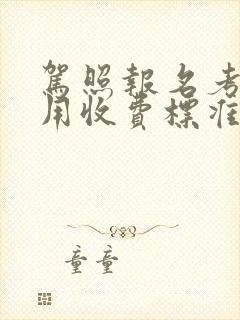 駕照報名考
用收費標准
童童